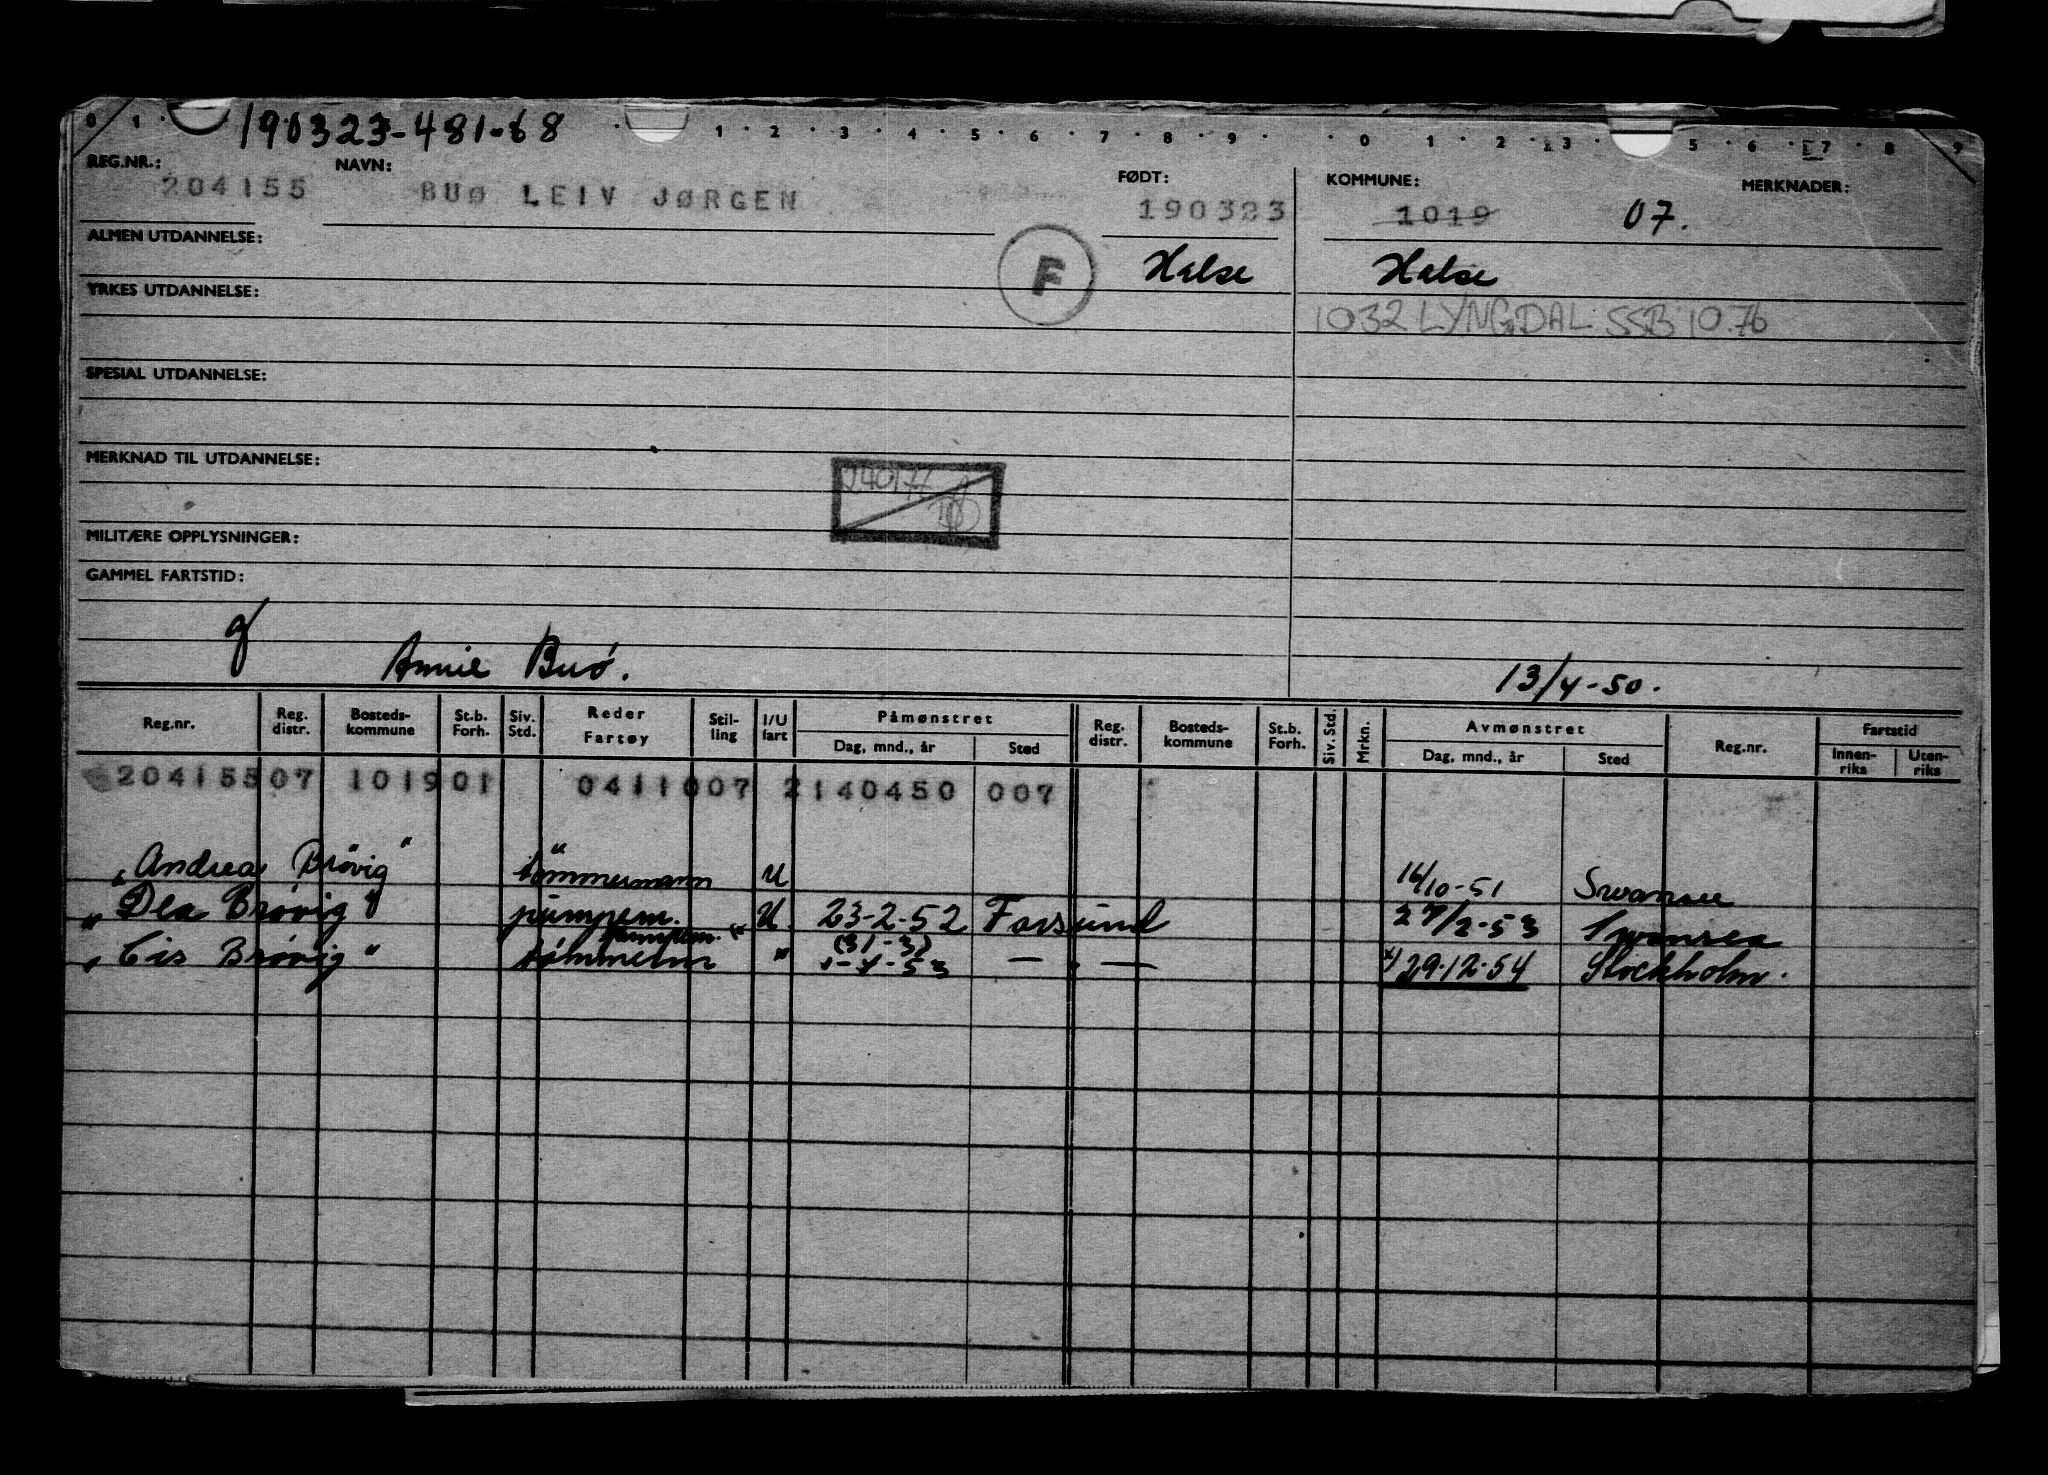 0 1 190323-481-68 1 2 3 4 5 6 7 8 9 0 1 2 3 5 6 7 8 9
REG.NR.: NAVN: FØDT: KOMMUNE: MERKNADER:
204155 BUØ LEIV JØRGEN 190323 1019 07.
ALMEN UTDANNELSE: F Halse Halse
YRKES UTDANNELSE:
1032 LYNGDAL SSB 10.76
SPESIAL UTDANNELSE:
MERKNAD TIL UTDANNELSE:
240177
MILITÆRE OPPLYSNINGER:
GAMMEL FARTSTID:
g Annie Buø. 13/4-50.
Reg.nr. Reg. distr. Bosteds- kommune St.b. Forh. Siv. Std. Reder Fartøy Stil- ling I/U fart Påmønstret Dag, mnd., år Sted Reg. distr. Bosteds- kommune St.b. Forh. Siv. Std. Mrkn. Avmønstret Dag, mnd., år Sted Reg.nr. Fartstid Innen- riks Uten- riks
204155 07 1019 01 0411007 2 140450 007
"Andrea Brøvig" tømmermann U 16/10-51 Swansea
"Dea Brøvig" pumpem. U. 23-2-52 Farsund 27/2-53 Swansea
pumpem. x (31-3)
"Cis Brøvig" tømmerm " 1-4-53 — — x) 29.12.54 Stockholm.